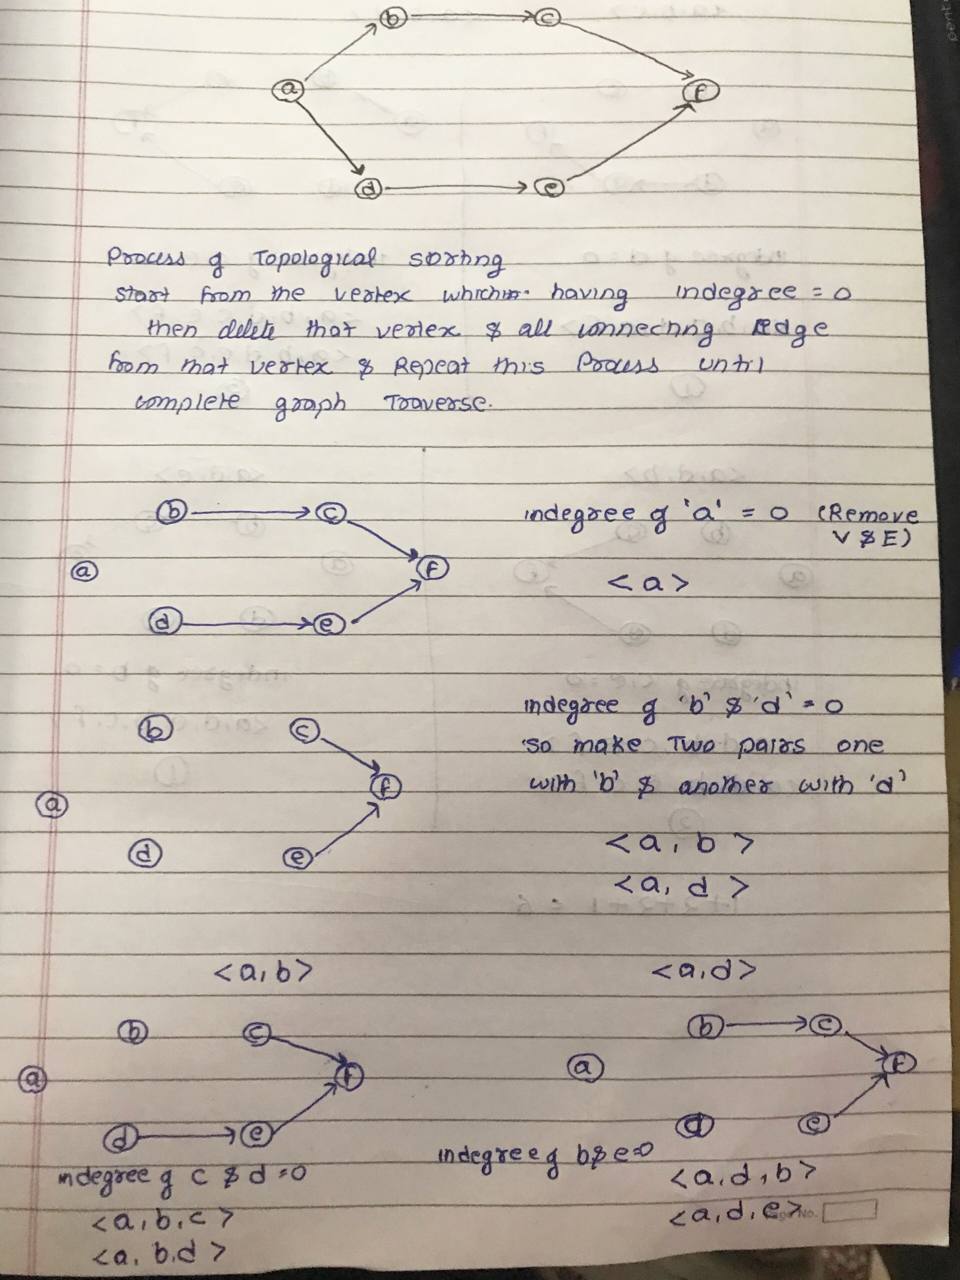 b c
a f
d e
Process of Topological sorting
start from the vertex which having indegree = 0
then delete that vertex & all connecting edge
from that vertex & Repeat this Process until
complete graph Traverse.
b c
a f
d e
indegree of 'a' = 0 (Remove
V & E)
<a>
b c
a f
d e
indegree of 'b' & 'd' = 0
so make Two pairs one
with 'b' & another with 'd'
<a, b>
<a, d>
<a,b>
b c
a f
d e
indegree of c & d =0
<a,b,c>
<a, b,d>
<a,d>
b c
a f
d e
indegree of b & e=0
<a,d,b>
<a,d,e>
No.